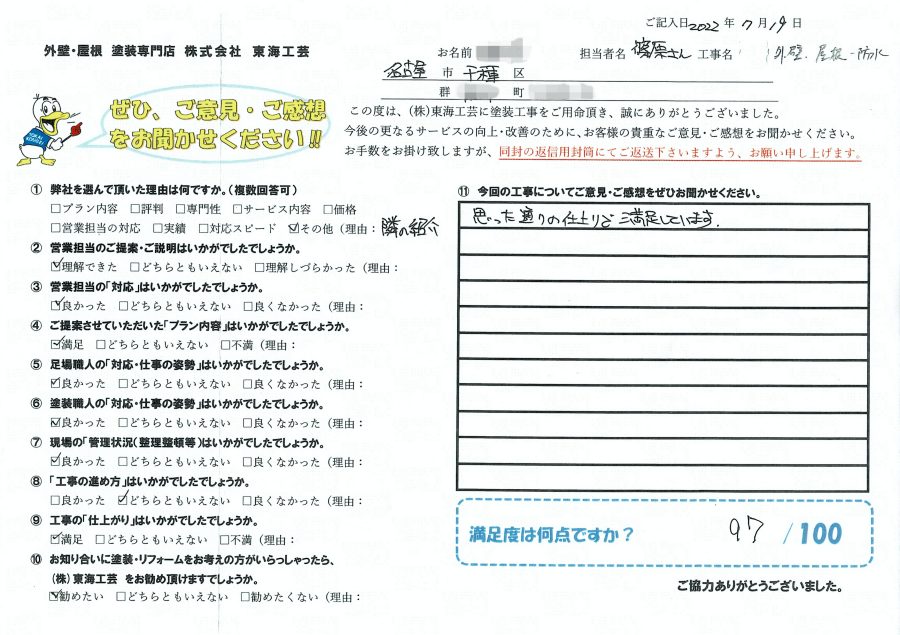 ご記入日2022年7月19日
外壁・屋根 塗装専門店 株式会社 東海工芸
お名前 担当者名 篠原さん 工事名 外壁、屋根、防水
名古屋 市 千種 区
群 町
ぜひ、ご意見・ご感想
をお聞かせください!!
この度は、(株)東海工芸に塗装工事をご用命頂き、誠にありがとうございました。
今後の更なるサービスの向上・改善のために、お客様の貴重なご意見・ご感想をお聞かせください。
お手数をお掛け致しますが、同封の返信用封筒にてご返送下さいますよう、お願い申し上げます。
① 弊社を選んで頂いた理由は何ですか。(複数回答可)
□プラン内容 □評判 □専門性 □サービス内容 □価格
□営業担当の対応 □実績 □対応スピード ☑その他(理由:隣の紹介
② 営業担当のご提案・ご説明はいかがでしたでしょうか。
☑理解できた □どちらともいえない □理解しづらかった(理由:
③ 営業担当の「対応」はいかがでしたでしょうか。
☑良かった □どちらともいえない □良くなかった(理由:
④ ご提案させていただいた「プラン内容」はいかがでしたでしょうか。
☑満足 □どちらともいえない □不満(理由:
⑤ 足場職人の「対応・仕事の姿勢」はいかがでしたでしょうか。
☑良かった □どちらともいえない □良くなかった(理由:
⑥ 塗装職人の「対応・仕事の姿勢」はいかがでしたでしょうか。
☑良かった □どちらともいえない □良くなかった(理由:
⑦ 現場の「管理状況(整理整頓等)はいかがでしたでしょうか。
☑良かった □どちらともいえない □良くなかった(理由:
⑧ 「工事の進め方」はいかがでしたでしょうか。
□良かった ☑どちらともいえない □良くなかった(理由:
⑨ 工事の「仕上がり」はいかがでしたでしょうか。
☑満足 □どちらともいえない □不満(理由:
⑩ お知り合いに塗装・リフォームをお考えの方がいらっしゃったら、
(株)東海工芸 をお勧め頂けますでしょうか。
☑勧めたい □どちらともいえない □勧めたくない(理由:
⑪ 今回の工事についてご意見・ご感想をぜひお聞かせください。
思った通りの仕上りで満足しています。
満足度は何点ですか? 97 /100
ご協力ありがとうございました。